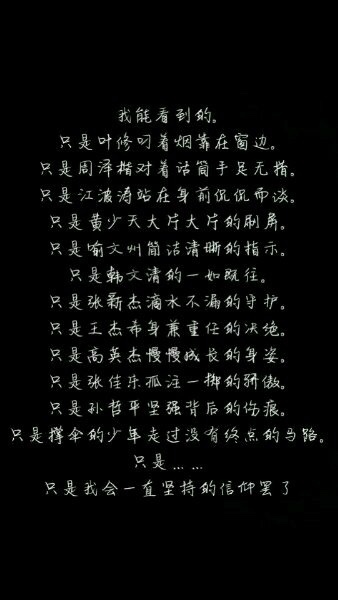 我能看到的。
只是叶修叼着烟靠在窗边。
只是周泽楷对着话筒手足无措。
只是江波涛站在身前侃侃而谈。
只是黄少天大片大片的刷屏。
只是喻文州简洁清晰的指示。
只是韩文清的一如既往。
只是张新杰滴水不漏的守护。
只是王杰希身兼重任的决绝。
只是高英杰慢慢成长的身姿。
只是张佳乐孤注一掷的骄傲。
只是孙哲平坚强背后的伤痕。
只是撑伞的少年走过没有终点的马路。
只是……
只是我会一直坚持的信仰罢了